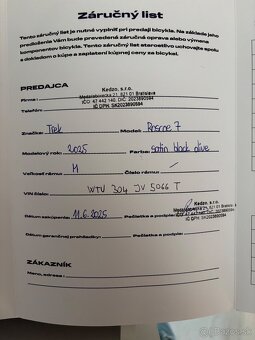 Záručný list
Tento záručný list je nutné vyplniť pri predaji bicykla. Na základe jeho
predloženia Vám bude prevedená záručná oprava alebo výmena
komponentov bicykla. Tento záručný list starostlivo uchovajte spolu
s dokladom o kúpe a zaplatení kúpnej ceny za bicykel.
PREDAJCA
Kedzo, s.r.o.
Firma: Medzilaborecká 21, 821 01 Bratislava
IČO 47 442 140, DIČ: 2023890594
IČ DPH: SK2023890594
Značka: Trek Model: Roscoe 7
Modelový rok: 2025 Farba: satin black olive
Veľkosť rámu: M Číslo rámu: /
VIN číslo: WTU 304 JV 5066 T
Dátum zakúpenia: 11.6.2025 Pečiatka a podpis:
Kedzo, s.r.o.
Dátum garančnej prehliadky: Pečiatka a podpis:
ZÁKAZNÍK
Meno, adresa:
bazos.sk